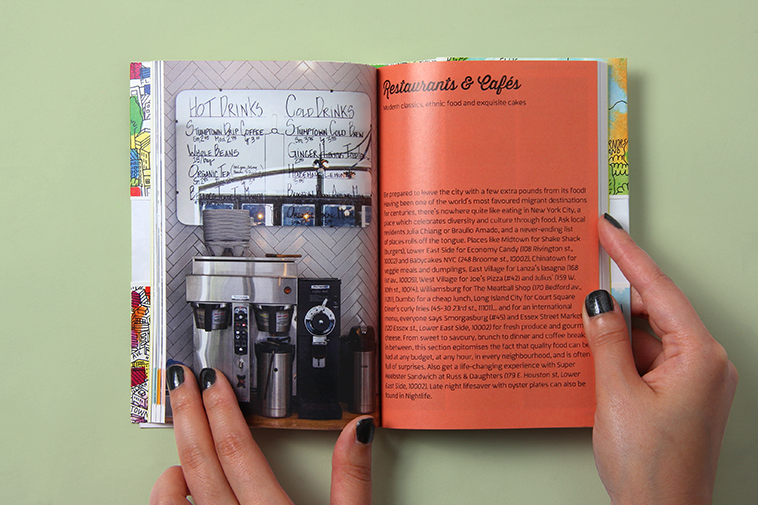 HOT DRINKS
STUMPTOWN DRIP COFFEE
WHOLE BEANS
ORGANIC TEA
COLD DRINKS
STUMPTOWN COLD BREW
GINGER
Restaurants & Cafés
Modern classics, ethnic food and exquisite cakes
Be prepared to leave the city with a few extra pounds from its food!
Having been one of the world's most favoured migrant destinations
for centuries, there's nowhere quite like eating in New York City, a
place which celebrates diversity and culture through food. Ask local
residents Julia Chiang or Braulio Amado, and a never-ending list
of places rolls off the tongue. Places like Midtown for Shake Shack
(burgers), Lower East Side for Economy Candy (108 Rivington st.,
10002) and Babycakes NYC (248 Broome st., 10002), Chinatown for
veggie meats and dumplings, East Village for Lanza's lasagna (168
1st av., 10009), West Village for Joe's Pizza (#42) and Julius' (159 W.
10th st., 10014), Williamsburg for The Meatball Shop (170 Bedford av.,
11211), Dumbo for a cheap lunch, Long Island City for Court Square
Diner's curly fries (45-30 23rd st., 11101)... and for an international
menu, everyone says Smorgasburg (#45) and Essex Street Market
(120 Essex st., Lower East Side, 10002) for fresh produce and gourmet
cheese. From sweet to savoury, brunch to dinner and coffee breaks
in between, this section epitomises the fact that quality food can be
had at any budget, at any hour, in every neighbourhood, and is often
full of surprises. Also get a life-changing experience with Super
Heebster Sandwich at Russ & Daughters (179 E. Houston st, Lower
East Side, 10002). Late night lifesaver with oyster plates can also be
found in Nightlife.